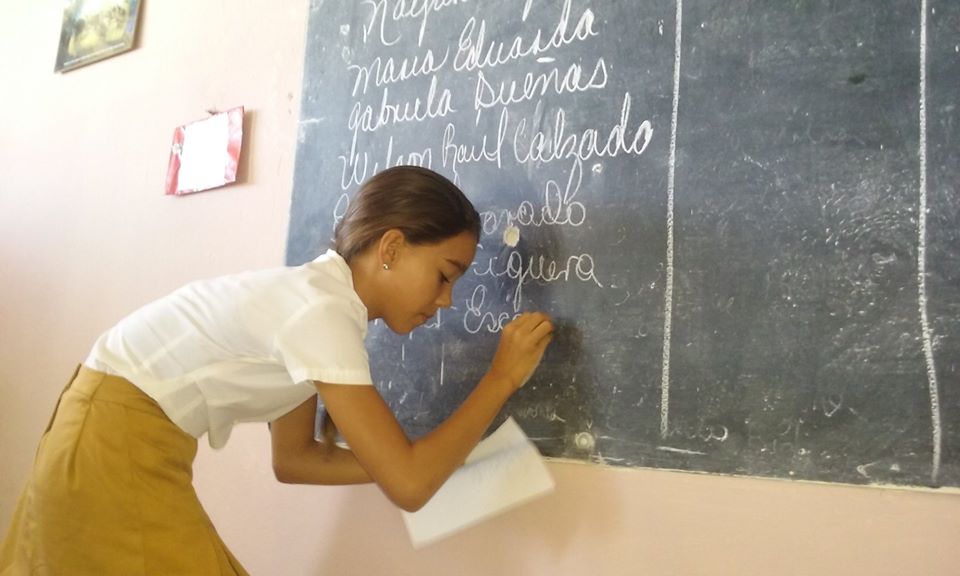 Maria Eduarda
gabriela Dueñas
Wilson Raúl Calzado
orado
iguera
Esc